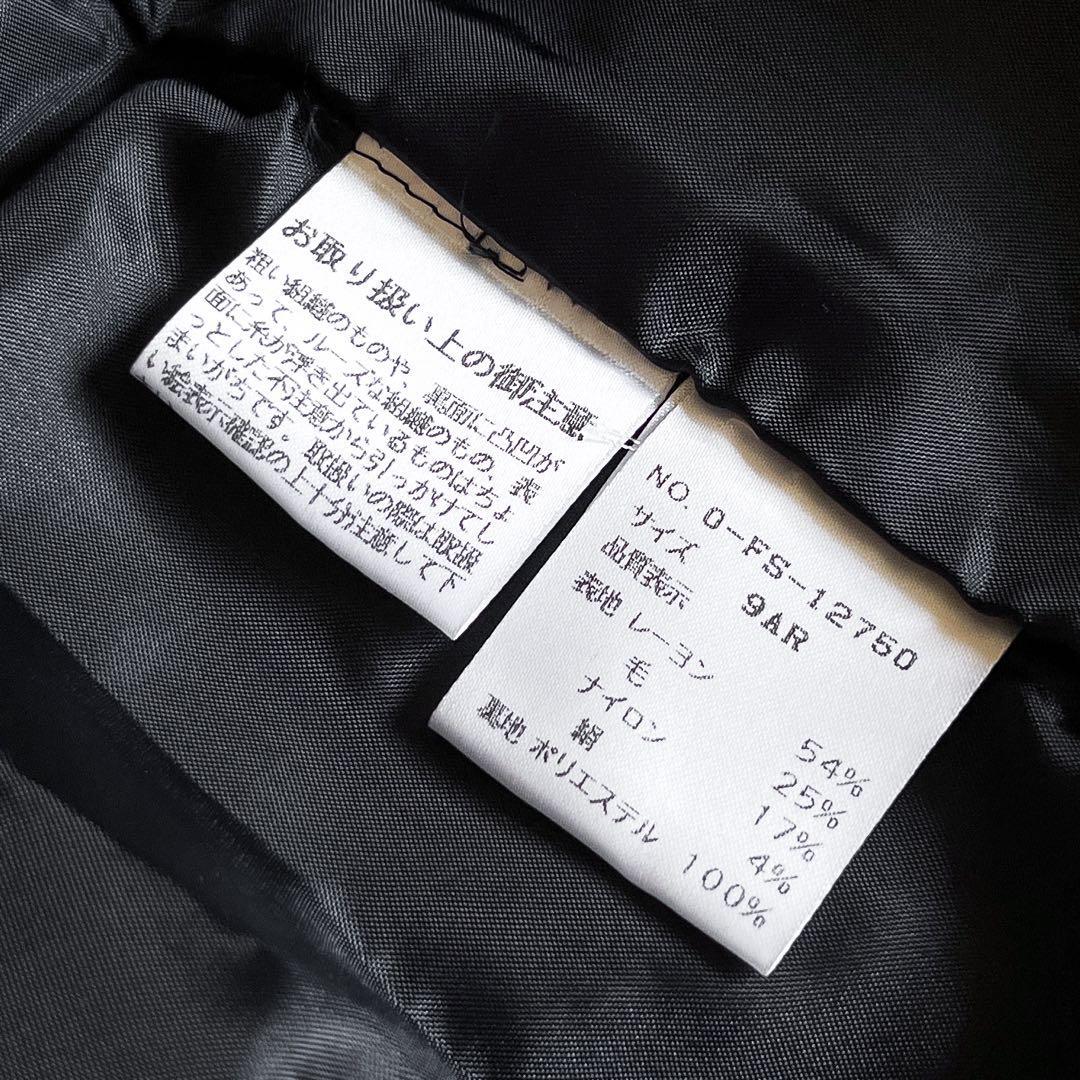 お取り扱い上の御注意
粗い組織のものや、裏面に凸凹が
あって、ルーズな組織のもの、表
面に糸が浮き出ているものはちょ
っとした不注意から引っかけてし
まいがちです。取扱いの際は取扱
い絵表示確認の上十分注意して下
NO. 0-FS-12750
サイズ 9AR
品質表示
表地 レーヨン 54%
毛 25%
ナイロン 17%
絹 4%
裏地 ポリエステル 100%